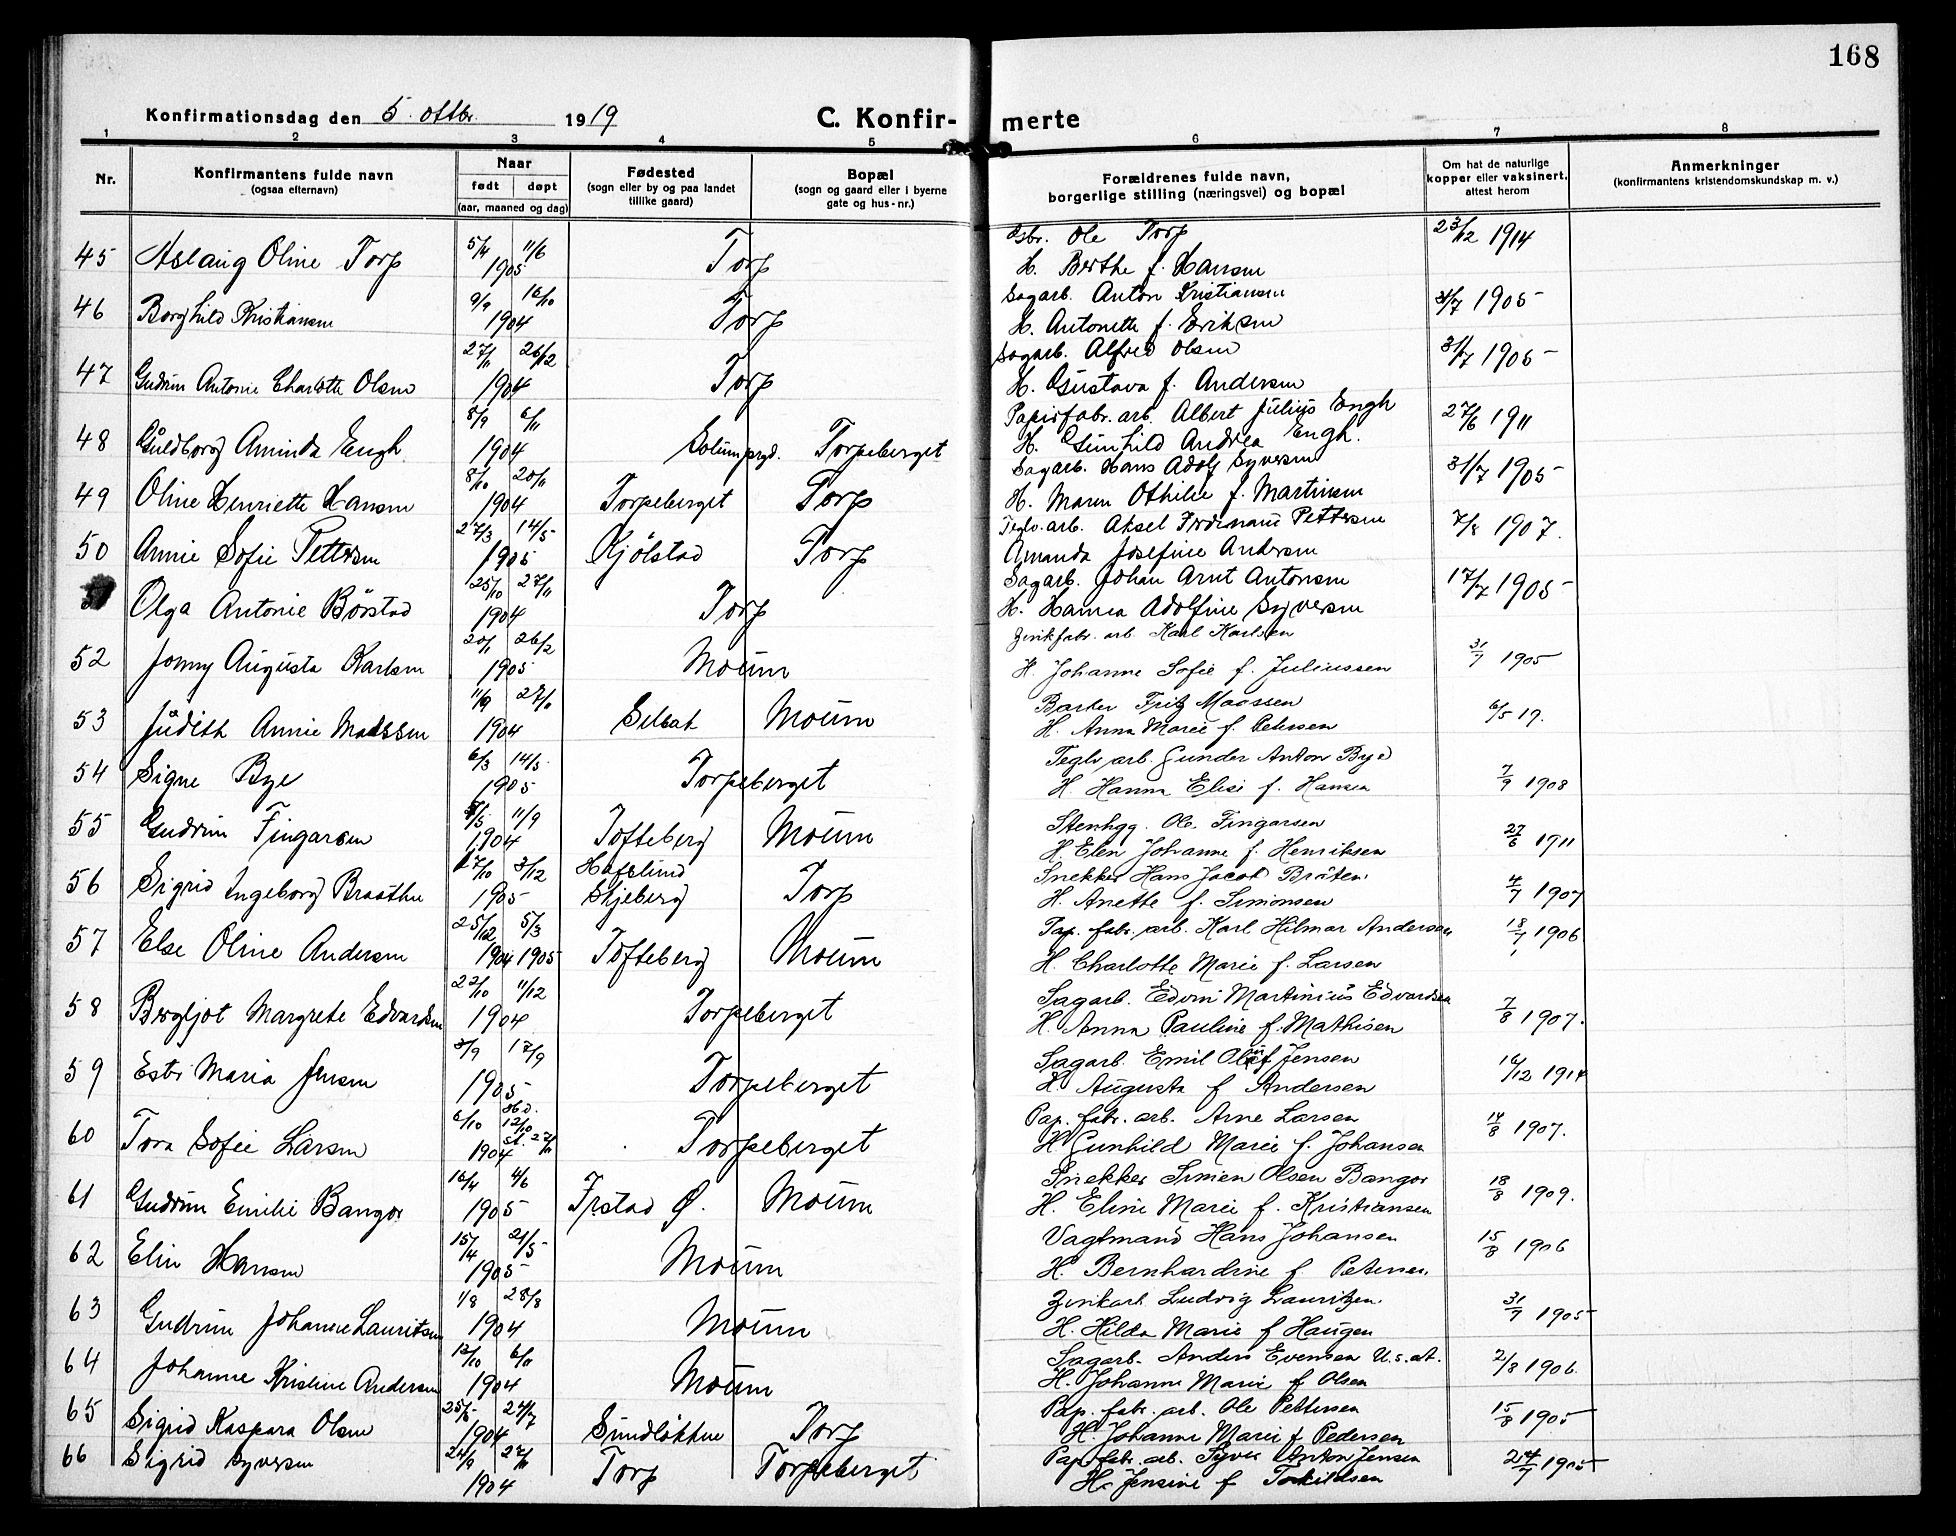 168
Konfirmationsdag den 5. oktbr. 1919
C. Konfir- merte
1 2 3 4 5 6 7 8
Nr.
Konfirmantens fulde navn
(ogsaa efternavn)
Naar
født døpt
(aar, maaned og dag)
Fødested
(sogn eller by og paa landet
tillike gaard)
Bopæl
(sogn og gaard eller i byerne
gate og hus-nr.)
Forældrenes fulde navn,
borgerlige stilling (næringsvei) og bopæl
Om hat de naturlige
kopper eller vaksinert.
attest herom
Anmerkninger
(konfirmantens kristendomskundskap m. v.)
45 Aslaug Oline Torp 5/4 11/6 1905 Torp
Gbr. Ole Torp 23/12 1914
H. Berthe f. Hansen
46 Borghild Kristiansen 9/9 16/10 1904 Torp
Sagarb. Anton Kristiansen 31/7 1905
H. Antonette f. Eriksen
47 Gudrun Antonie Charlotte Olsen 27/11 26/12 1904 Torp
Sagarb. Alfred Olsen 31/7 1905
H. Gustava f. Andersen
48 Guldborg Aminda Engh 8/9 6/11 1904 Solumsgd. Torpeberget
Papirfabr. arb. Albert Julius Engh 27/6 1911
H. Gunhild Andrea Engh.
49 Oline Henriette Hansen 8/10 20/11 1904 Torpeberget Torp
Sagarb. Hans Adolf Syversen 31/7 1905
H. Maren Othilie f. Martinsen
50 Annie Sofie Pettersen 27/3 14/5 1905 Kjølstad Torp
Teglv. arb. Aksel Ferdinand Pettersen 7/8 1907.
Amanda Josefine Andersen
51 Olga Antonie Børstad 25/10 27/11 1904 Torp
Sagarb. Johan Arnt Antonsen 17/7 1905
H. Hanna Adolfine Syversen
52 Jenny Augusta Karlsen 20/1 26/2 1905 Moum
Zinkfabr. arb. Karl Karlsen 31/7 1905
H. Johanne Sofie f. Juliussen
53 Judith Annie Maassen 11/9 27/10 1904 Selbak Moum
Barker Fritz Maassen 6/5 19.
H. Anna Marie f. Petersen
54 Signe Bye 6/3 14/5 1905 Torpeberget
Teglv. arb. Gunder Anton Bye 7/9 1908
H. Hanna Elise f. Hansen
55 Gudrun Fingarsen 11/9 1904 Tofteberg Moum
Stenhgg. Ole Fingarsen 27/6 1911
H. Elen Johanne f. Henriksen
56 Sigrid Ingeborg Braathen 27/10 3/12 1905 Hafslund Skjeberg Torp
Snekker Hans Jacob Bråten 4/7 1907
H. Anette f. Simonsen
57 Else Oline Andersen 25/12 5/3 1904 1905 Tofteberg Moum
Pap. fabr. arb. Karl Hilmar Andersen 18/7 1906
H. Charlotte Marie f. Larsen
58 Bergljot Margrete Edvardsen 22/10 11/12 1904 Torpeberget
Sagarb. Edvin Martinius Edvardsen 7/8 1907.
H. Anna Pauline f. Mathisen
59 Ester Maria Jensen 3/9 17/9 1905 Torpeberget
Sagarb. Emil Olaf Jensen 16/12 1914
H. Augusta f. Andersen
60 Tora Sofie Larsen 6/10 hd. 12/10 st. 27/11 1904 Torpeberget
Pap. fabr. arb. Arne Larsen 14/8 1907.
H. Gunhild Marie f. Johansen
61 Gudrun Emilie Bangor 16/4 4/6 1905 Irstad Ø. Moum
Snekker Simen Olsen Bangor 18/8 1909.
H. Eline Marie f. Kristiansen
62 Elin Hansen 15/4 21/5 1905 Moum
Vagtmand Hans Johansen 15/8 1906
H. Bernhardine f. Petersen
63 Gudrun Johanne Lauritsen 1/8 28/8 1904 Moum
Zinkarb. Ludvig Lauritzen. 31/7 1905
H. Hilda Marie f. Haugen
64 Johanne Kristine Andersen 13/10 6/11 1904 Moum
Sagarb. Anders Evensen U.s.A. 2/8 1906.
H. Johanne Marie f. Olsen
65 Sigrid Kaspara Olsen 25/5 24/7 1904 Sundløkken Torp
Pap. fabr. arb. Ole Pettersen 15/8 1905
H. Johanne Marie f. Pedersen
66 Sigrid Syversen 24/9 27/11 1904 Torp Torpeberget
Pap. fabr. arb. Syver Anton Jensen 24/7 1905
H. Jensine f. Torkildsen